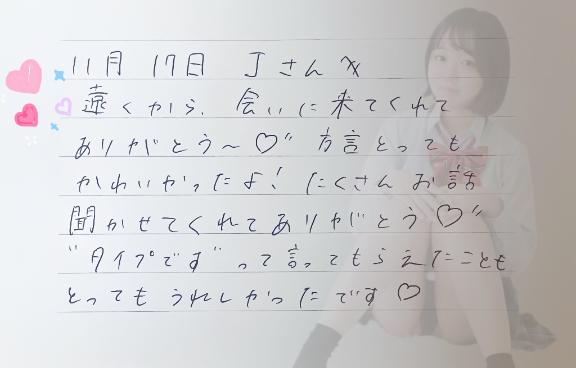 11月 17日 Jさん
遠くから、会いに来てくれて
ありがとう〜♡" 方言とっても
かわいかったよ! たくさんお話
聞かせてくれてありがとう♡"
"タイプです"って言ってもらえたことも
とってもうれしかったです♡